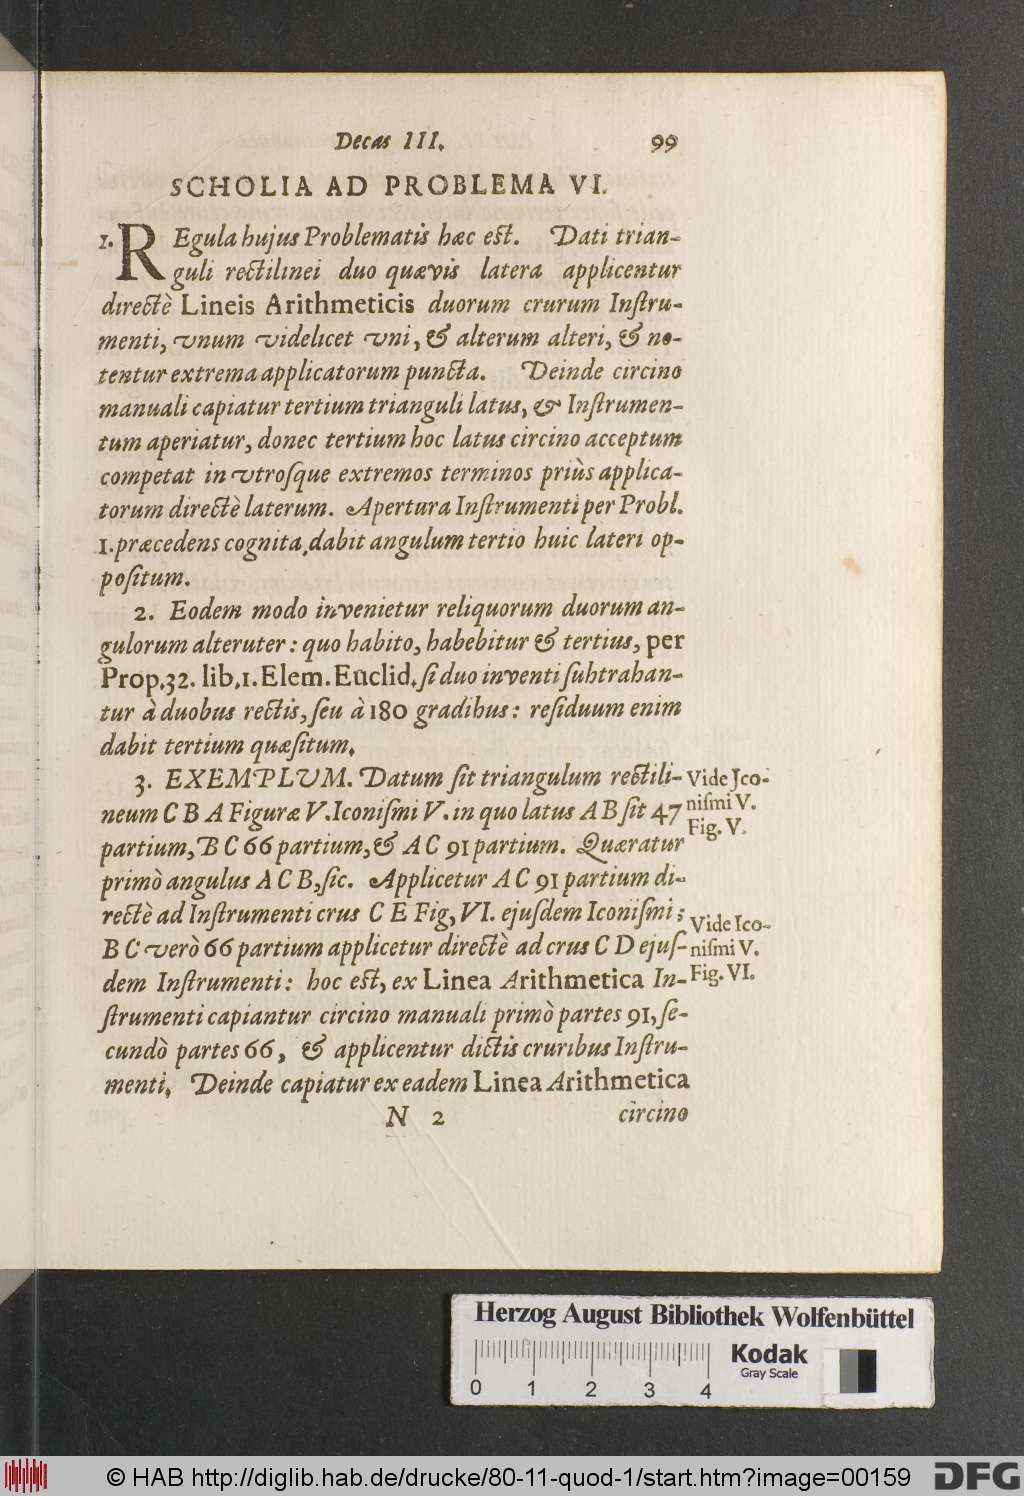 Decas III. 99
SCHOLIA AD PROBLEMA VI.
1. REgula hujus Problematis hæc est. Dati trian-
guli rectilinei duo quævis latera applicentur
directè Lineis Arithmeticis duorum crurum Inſtru-
menti, vnum videlicet vni, & alterum alteri, & no-
tentur extrema applicatorum puncta. Deinde circino
manuali capiatur tertium trianguli latus, & Inſtrumen-
tum aperiatur, donec tertium hoc latus circino acceptum
competat in vtroſque extremos terminos priùs applica-
torum directè laterum. Apertura Inſtrumenti per Probl.
1. præcedens cognita, dabit angulum tertio huic lateri op-
poſitum.
2. Eodem modo invenietur reliquorum duorum an-
gulorum alteruter: quo habito, habebitur & tertius, per
Prop. 32. lib. 1. Elem. Euclid. ſi duo inventi ſubtrahan-
tur à duobus rectis, ſeu à 180 gradibus: reſiduum enim
dabit tertium quæſitum.
3. EXEMPLVM. Datum ſit triangulum rectili-
neum C B A Figuræ V. Iconiſmi V. in quo latus A B ſit 47
partium, B C 66 partium, & A C 91 partium. Quæratur
primò angulus A C B, ſic. Applicetur A C 91 partium di-
rectè ad Inſtrumenti crus C E Fig, VI. ejuſdem Iconiſmi;
B C verò 66 partium applicetur directè ad crus C D ejuſ-
dem Inſtrumenti: hoc est, ex Linea Arithmetica In-
ſtrumenti capiantur circino manuali primò partes 91, ſe-
cundò partes 66, & applicentur dictis cruribus Inſtru-
menti. Deinde capiatur ex eadem Linea Arithmetica
N 2 circino
Vide Ico-
niſmi V.
Fig. V.
Vide Ico-
niſmi V.
Fig. VI.
Herzog August Bibliothek Wolfenbüttel
Kodak
Gray Scale
0 1 2 3 4
© HAB http://diglib.hab.de/drucke/80-11-quod-1/start.htm?image=00159
DFG